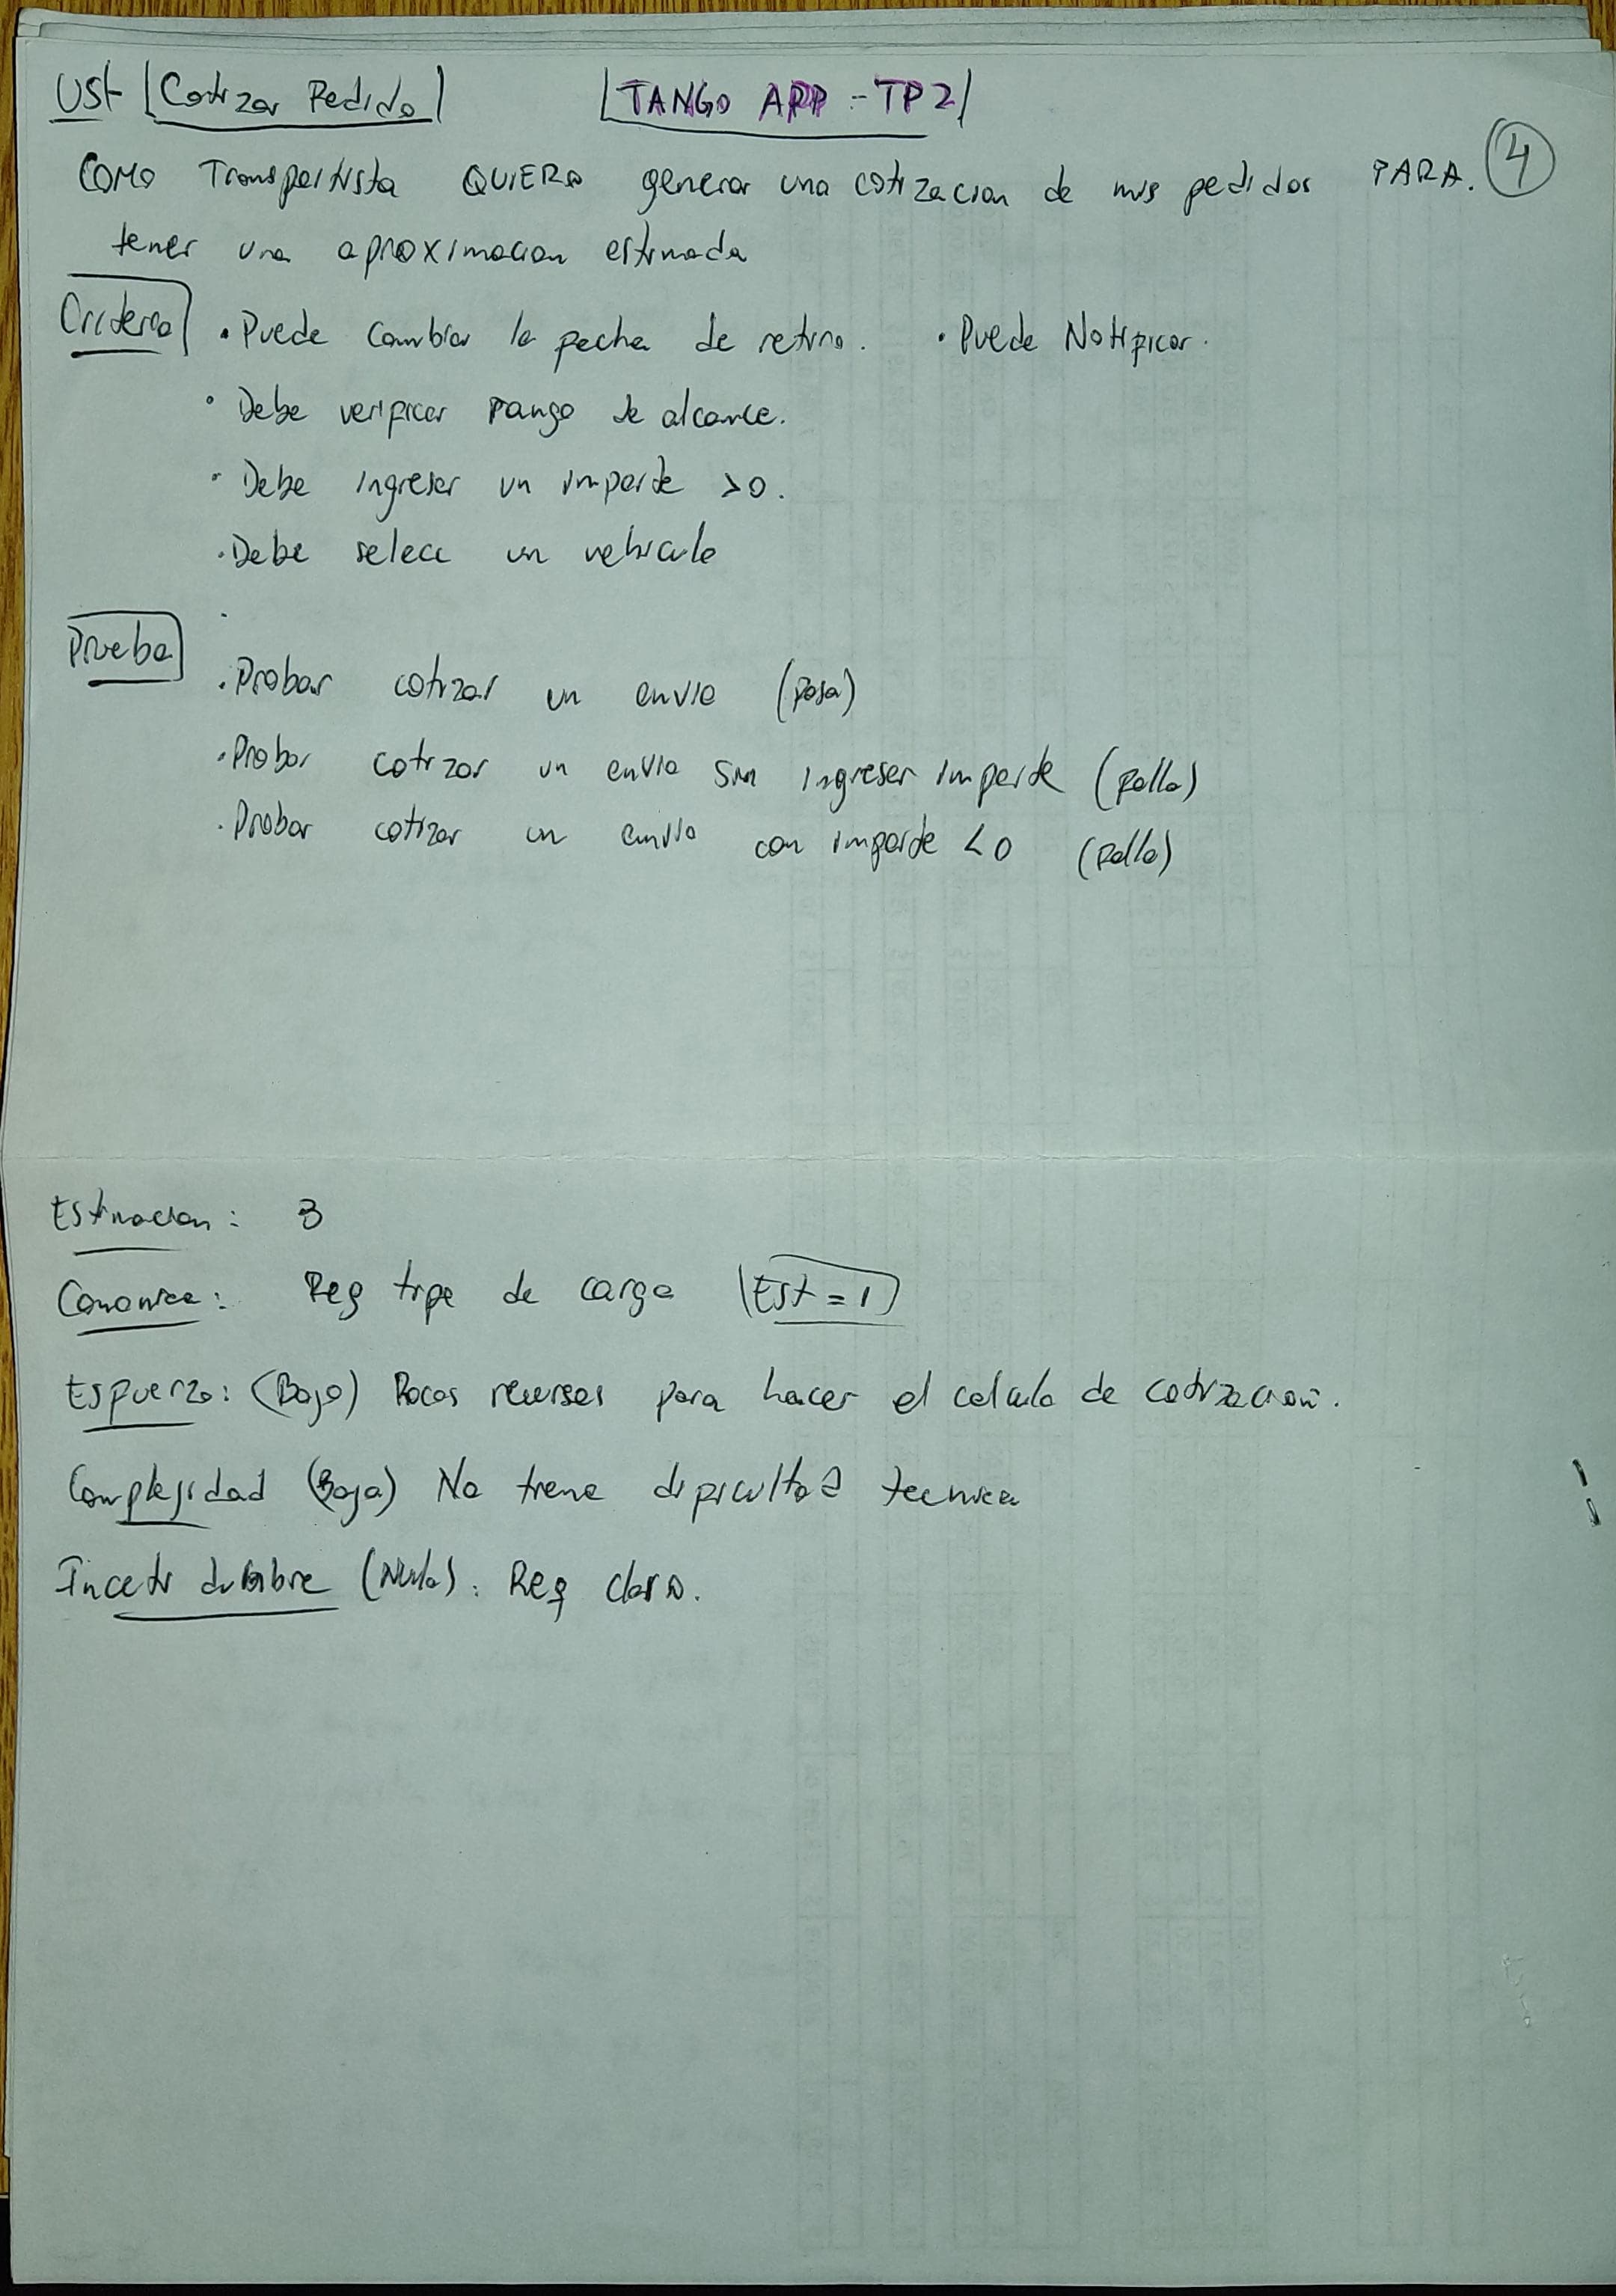 USt Cotizar Pedido TANGO APP - TP2
COMO Transportista QUIERO generar una cotizacion de mis pedidos PARA. 4
tener una aproximacion estimada
Criterio • Puede cambiar la fecha de retiro. • Puede Notificar.
• Debe verificar rango de alcance.
• Debe ingresar un importe >0.
• Debe selecc un vehiculo
Prueba
• Probar cotizar un envio (pasa)
• Probar cotizar un envio sin ingresar importe (falla)
• Probar cotizar un envio con importe <0 (falla)
Estimacion: 3
Canonica: Reg tipo de carga (Est = 1)
Esfuerzo: (Bajo) Pocos recursos para hacer el calculo de cotizacion.
Complejidad (Baja) No tiene dificultad tecnica
Incertidumbre (Nula): Req claro.